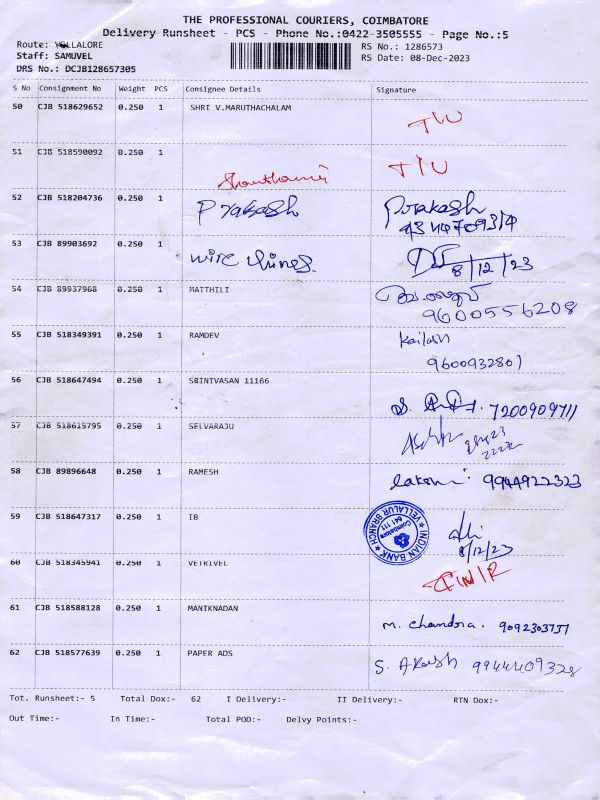 THE PROFESSIONAL COURIERS, COIMBATORE
Delivery Runsheet - PCS - Phone No.:0422-3505555 - Page No.:5
Route: VELLALORE RS No.: 1286573
Staff: SAMUVEL RS Date: 08-Dec-2023
DRS No.: DCJB128657305
S No Consignment No Weight PCS Consignee Details Signature
50 CJB 518629652 0.250 1 SHRI V.MARUTHACHALAM
51 CJB 518590092 0.250 1
52 CJB 518204736 0.250 1 Prakash Prakash
53 CJB 89903692 0.250 1 wire 8/12/23
54 CJB 89937968 0.250 1 MATTHILI
9600556208
55 CJB 518349391 0.250 1 RAMDEV Kailash
9600932801
56 CJB 518647494 0.250 1 SRINTVASAN 11166 7200909711
57 CJB 518615795 0.250 1 SELVARAJU
58 CJB 89896648 0.250 1 RAMESH 9944922323
59 CJB 518647317 0.250 1 IB
INDIAN BANK
Coimbatore
641 111
VELLALUR BRANCH
8/12/23
60 CJB 518345941 0.250 1 VETRIVEL
61 CJB 518588128 0.250 1 MANIKNADAN
M. Chandra.
62 CJB 518577639 0.250 1 PAPER ADS S. Akash 9944409328
Tot. Runsheet:- 5 Total Dox:- 62 I Delivery:- II Delivery:- RTN Dox:-
Out Time:- In Time:- Total POD:- Delvy Points:-